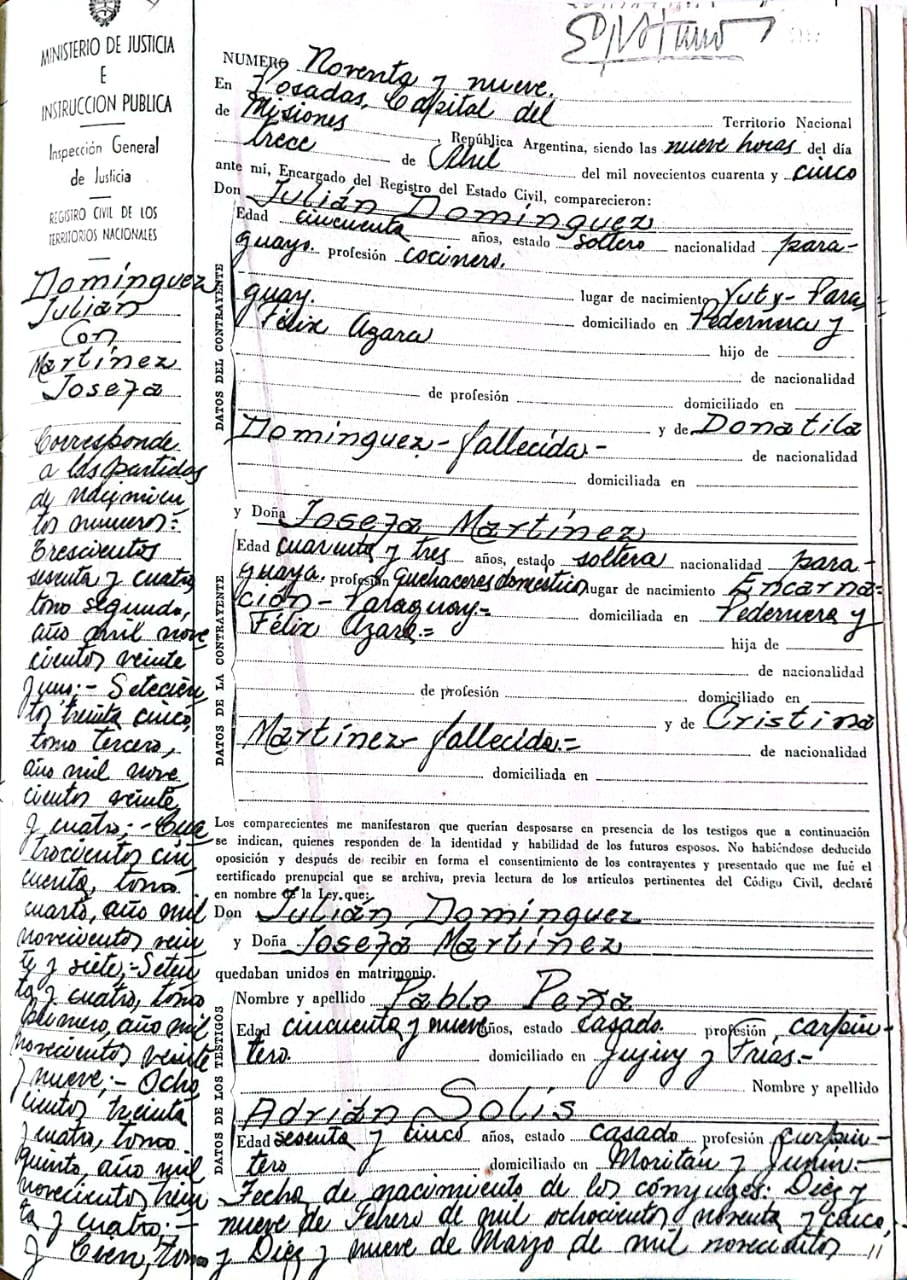 MINISTERIO DE JUSTICIA
E
INSTRUCCION PUBLICA
Inspección General
de Justicia
REGISTRO CIVIL DE LOS
TERRITORIOS NACIONALES
Domínguez
Julián
Con
Martínez
Josefa
Corresponde
a las partidas
de nacimien
tos numeros:
trescientos
sesenta y cuatro
tomo segundo,
año mil nove
cientos veinte
y uno;- Setecien
tos treinta cinco,
tomo tercero,
año mil nove
cientos veinte
y cuatro;- Cua
trocientos cin
cuenta, tomo
cuarto, año mil
novecientos vein
te y siete;- Seten
ta y cuatro, tomo
primero, año mil
novecientos veinte
y nueve;- Ocho
cientos treinta
y cuatro, tomo
quinto, año mil
novecientos trein
ta y cuatro:-
y Cien, tomo
NUMERO Noventa y nueve.
En Posadas, Capital del
Territorio Nacional
de Misiones República Argentina, siendo las nueve horas del día
trece de Abril del mil novecientos cuarenta y cinco
ante mí, Encargado del Registro del Estado Civil, comparecieron:
Don Julián Domínguez
DATOS DEL CONTRAYENTE
Edad cincuenta años, estado soltero nacionalidad para-
guayo. profesión cocinero.
lugar de nacimiento Yuty- Para
guay. domiciliado en Pedernera y
Félix Azara hijo de
de nacionalidad
de profesión domiciliado en
y de Donatila
Domínguez- fallecida.- de nacionalidad
domiciliada en
y Doña Josefa Martínez
DATOS DE LA CONTRAYENTE
Edad cuarenta y tres años, estado soltera nacionalidad para-
guaya. profesión Quehaceres domestico lugar de nacimiento Encarna-
ción- Paraguay.= domiciliada en Pedernera y
Félix Azara.= hija de
de nacionalidad
de profesión domiciliado en
y de Cristina
Martínez- fallecida.= de nacionalidad
domiciliada en
Los comparecientes me manifestaron que querían desposarse en presencia de los testigos que a continuación
se indican, quienes responden de la identidad y habilidad de los futuros esposos. No habiéndose deducido
oposición y después de recibir en forma el consentimiento de los contrayentes y presentado que me fué el
certificado prenupcial que se archiva, previa lectura de los artículos pertinentes del Código Civil, declaré
en nombre de la Ley, que:
Don Julián Domínguez
y Doña Josefa Martínez
quedaban unidos en matrimonio.
DATOS DE LOS TESTIGOS
Nombre y apellido Pablo Peña
Edad cincuenta y nueve años, estado casado. profesión carpin-
tero. domiciliado en Jujuy y Frías.-
Nombre y apellido
Adrián Solís
Edad sesenta y cinco años, estado casado profesión carpin-
tero domiciliado en Moritán y Junín.-
Fecha de nacimiento de los cónyuges: Diez y
nueve de Febrero de mil ochocientos noventa y cinco,
y Diez y nueve de Marzo de mil novecientos //